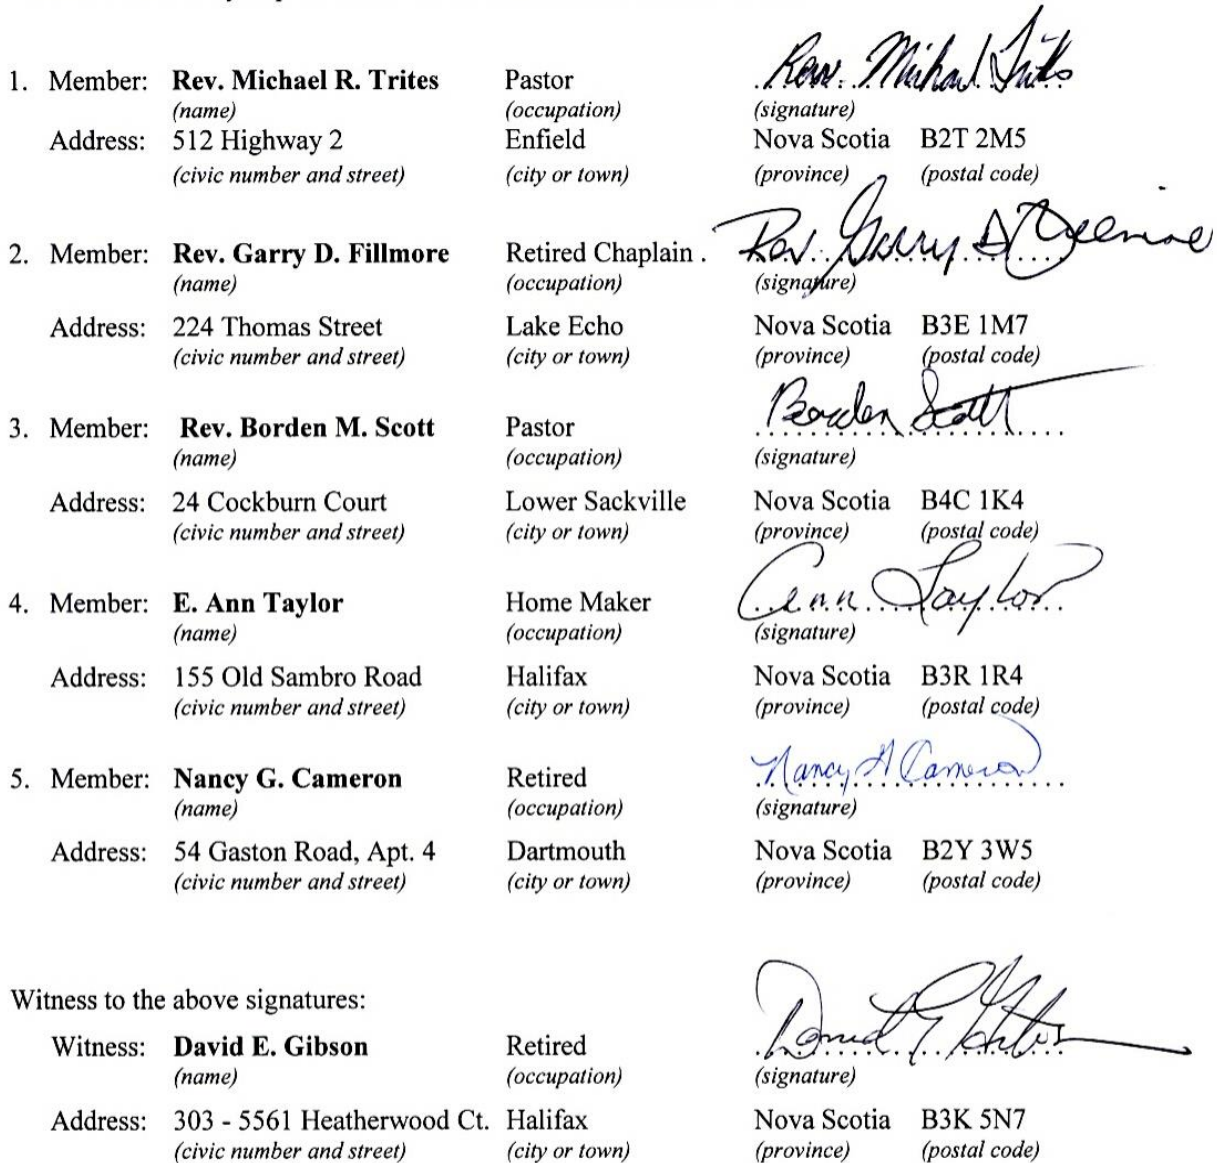 1. Member: Rev. Michael R. Trites Pastor Rev. Michael Trites
(name) (occupation) (signature)
Address: 512 Highway 2 Enfield Nova Scotia B2T 2M5
(civic number and street) (city or town) (province) (postal code)
2. Member: Rev. Garry D. Fillmore Retired Chaplain . Rev. Garry D
(name) (occupation) (signature)
Address: 224 Thomas Street Lake Echo Nova Scotia B3E 1M7
(civic number and street) (city or town) (province) (postal code)
3. Member: Rev. Borden M. Scott Pastor Borden Scott
(name) (occupation) (signature)
Address: 24 Cockburn Court Lower Sackville Nova Scotia B4C 1K4
(civic number and street) (city or town) (province) (postal code)
4. Member: E. Ann Taylor Home Maker Ann Taylor
(name) (occupation) (signature)
Address: 155 Old Sambro Road Halifax Nova Scotia B3R 1R4
(civic number and street) (city or town) (province) (postal code)
5. Member: Nancy G. Cameron Retired Nancy G Cameron
(name) (occupation) (signature)
Address: 54 Gaston Road, Apt. 4 Dartmouth Nova Scotia B2Y 3W5
(civic number and street) (city or town) (province) (postal code)
Witness to the above signatures:
Witness: David E. Gibson Retired David E Gibson
(name) (occupation) (signature)
Address: 303 - 5561 Heatherwood Ct. Halifax Nova Scotia B3K 5N7
(civic number and street) (city or town) (province) (postal code)